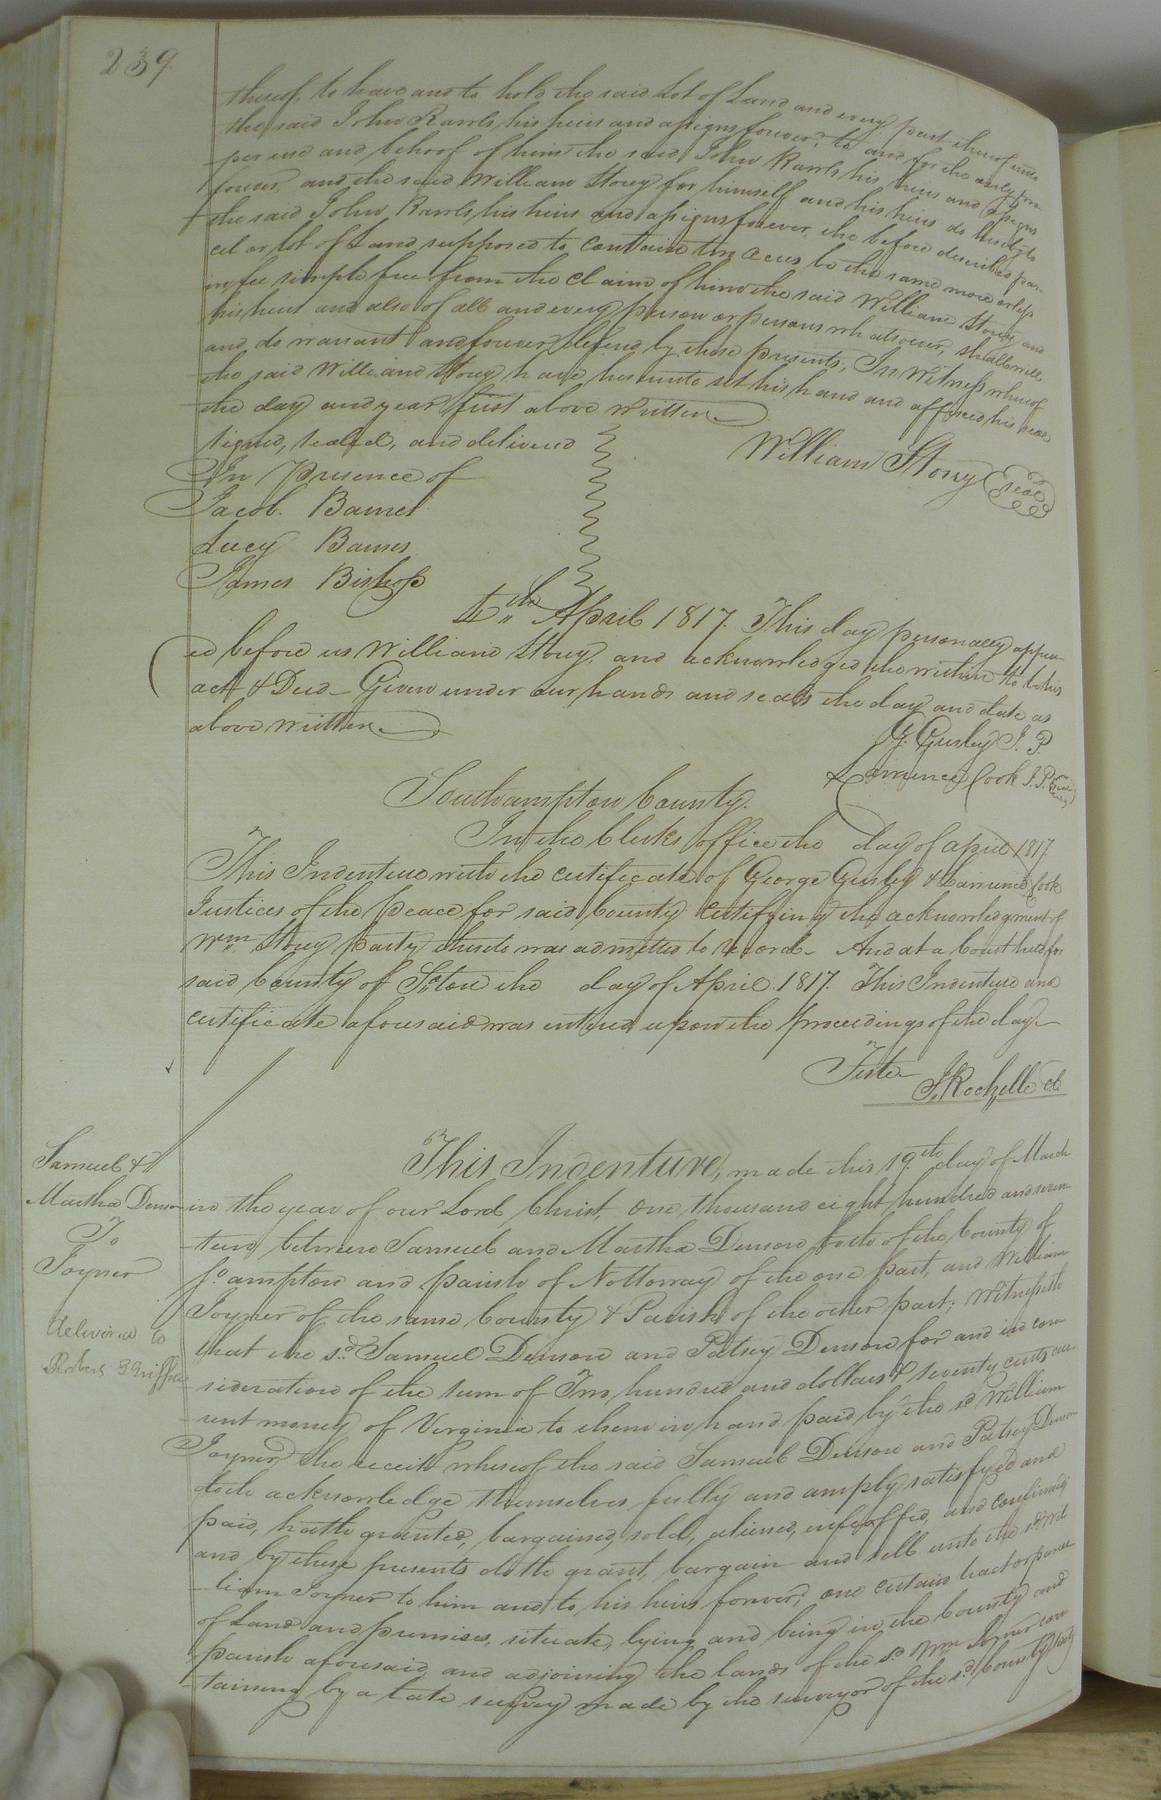 239
thereof, to have and to hold the said Lot of Land and every part thereof unto
the said John Rawls his heirs and assigns forever, to and for the only pro
per use and behoof of him the said John Rawls his heirs and assigns
forever, and the said William Storey for himself and his heirs do hereby to
the said John Rawls his heirs and assigns forever, the before described par-
cel or lot of Land supposed to contain ten acres be the same more or less
in fee simple free from the claim of him the said William Storey and
his heirs and also of all and every person or persons whatsoever, shall will
and do warrant and forever defend by these presents, In Witness whereof
the said William Storey have hereunto set his hand and affixed his seal
the day and year first above written
signed, sealed, and delivered
William Storey (seal)
In presence of
Jacob. Barnes
Lucy Barnes
James Bishop
4th April 1817. This day personally appear
ed before us William Storey, and acknowledged the within to be his
act & Deed - Given under our hands and seals the day and date as
above written
G. Gurley J. P.
Lawrence Cook J. P.
Southampton County.
In the Clerks office the day of April 1817
This Indenture with the certificate of George Gurley & Lawrence Cook
Justices of the peace for said County certifying the acknowledgment of
Wm Storey party thereto was admitted to record - And at a Court held for
said County of Soton the day of April 1817. This Indenture and
certificate aforesaid was entered upon the proceedings of the day -
Teste J. Rochelle cl
Samuel &
Martha Denson
To
Joyner
delivered to
Robert Griffin
This Indenture, made this 19th day of March
in the year of our Lord Christ, One thousand eight hundred and seven
teen, between Samuel and Martha Denson both of the County of
So ampton and parish of Nottoway of the one part, and William
Joyner of the same County & Parish of the other part; Witnesseth
that the sd. Samuel Denson and Patsey Denson for and in con
sideration of the sum of Two hundred and dollars & seventy cents cur
rent money of Virginia to them in hand paid by the sd William
Joyner, the receit whereof the said Samuel Denson and Patsey Denson
doth acknowledge themselves fully and amply satisfyed and
paid, hath granted, bargained, sold, aliened, enfeoffed, and confirmed
and by these presents doth grant, bargain and sell unto the sd Wil
liam Joyner to him and to his heirs forever; one certain tract or parcel
of Land and premises, situate, lying and being in the County and
parish aforesaid and adjoining the lands of the sd. Wm Joyner con
taining by a late survey made by the surveyor of the sd County